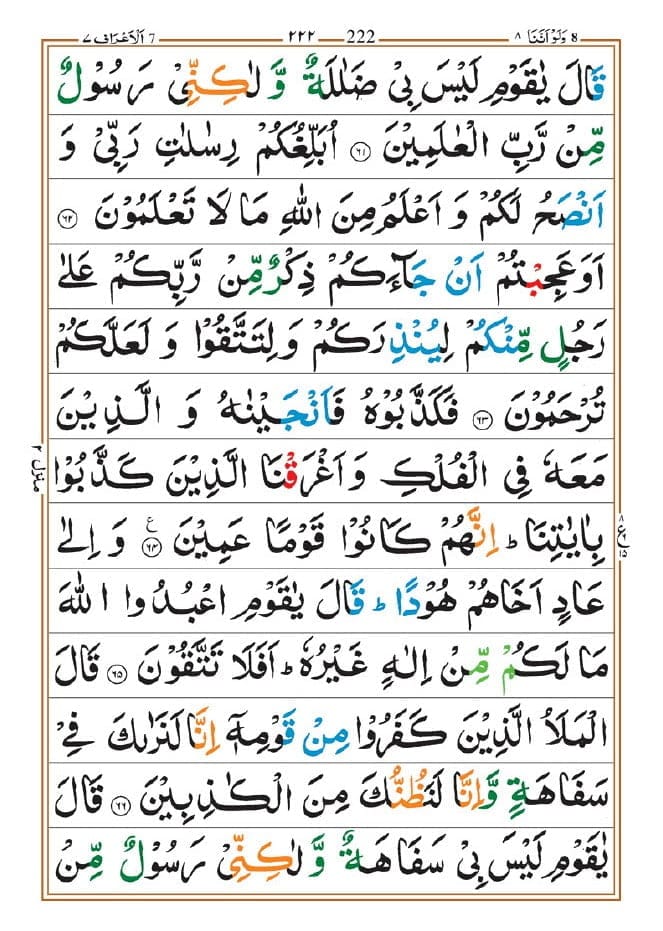 8 وَلَوْ اَنَّنَا ٨
222 ٢٢٢
7 اَلْاَعْرَاف ٧
قَالَ يٰقَوْمِ لَيْسَ بِىْ ضَلٰلَةٌ وَّ لٰكِنِّىْ رَسُوْلٌ
مِّنْ رَّبِّ الْعٰلَمِيْنَ ﴿٦١﴾ اُبَلِّغُكُمْ رِسٰلٰتِ رَبِّىْ وَ
اَنْصَحُ لَكُمْ وَ اَعْلَمُ مِنَ اللّٰهِ مَا لَا تَعْلَمُوْنَ ﴿٦٢﴾
اَوَعَجِبْتُمْ اَنْ جَآءَكُمْ ذِكْرٌ مِّنْ رَّبِّكُمْ عَلٰى
رَجُلٍ مِّنْكُمْ لِيُنْذِرَكُمْ وَ لِتَتَّقُوْا وَ لَعَلَّكُمْ
تُرْحَمُوْنَ ﴿٦٣﴾ فَكَذَّبُوْهُ فَاَنْجَيْنٰهُ وَ الَّذِيْنَ
مَعَهٗ فِى الْفُلْكِ وَ اَغْرَقْنَا الَّذِيْنَ كَذَّبُوْا
بِاٰيٰتِنَا ؕ اِنَّهُمْ كَانُوْا قَوْمًا عَمِيْنَ ﴿٦٤﴾ ع وَ اِلٰى
عَادٍ اَخَاهُمْ هُوْدًا ؕ قَالَ يٰقَوْمِ اعْبُدُوا اللّٰهَ
مَا لَكُمْ مِّنْ اِلٰهٍ غَيْرُهٗ ؕ اَفَلَا تَتَّقُوْنَ ﴿٦٥﴾ قَالَ
الْمَلَاُ الَّذِيْنَ كَفَرُوْا مِنْ قَوْمِهٖۤ اِنَّا لَنَرٰىكَ فِىْ
سَفَاهَةٍ وَّ اِنَّا لَنَظُنُّكَ مِنَ الْكٰذِبِيْنَ ﴿٦٦﴾ قَالَ
يٰقَوْمِ لَيْسَ بِىْ سَفَاهَةٌ وَّ لٰكِنِّىْ رَسُوْلٌ مِّنْ
منزل ٢
٨ ع ١٥